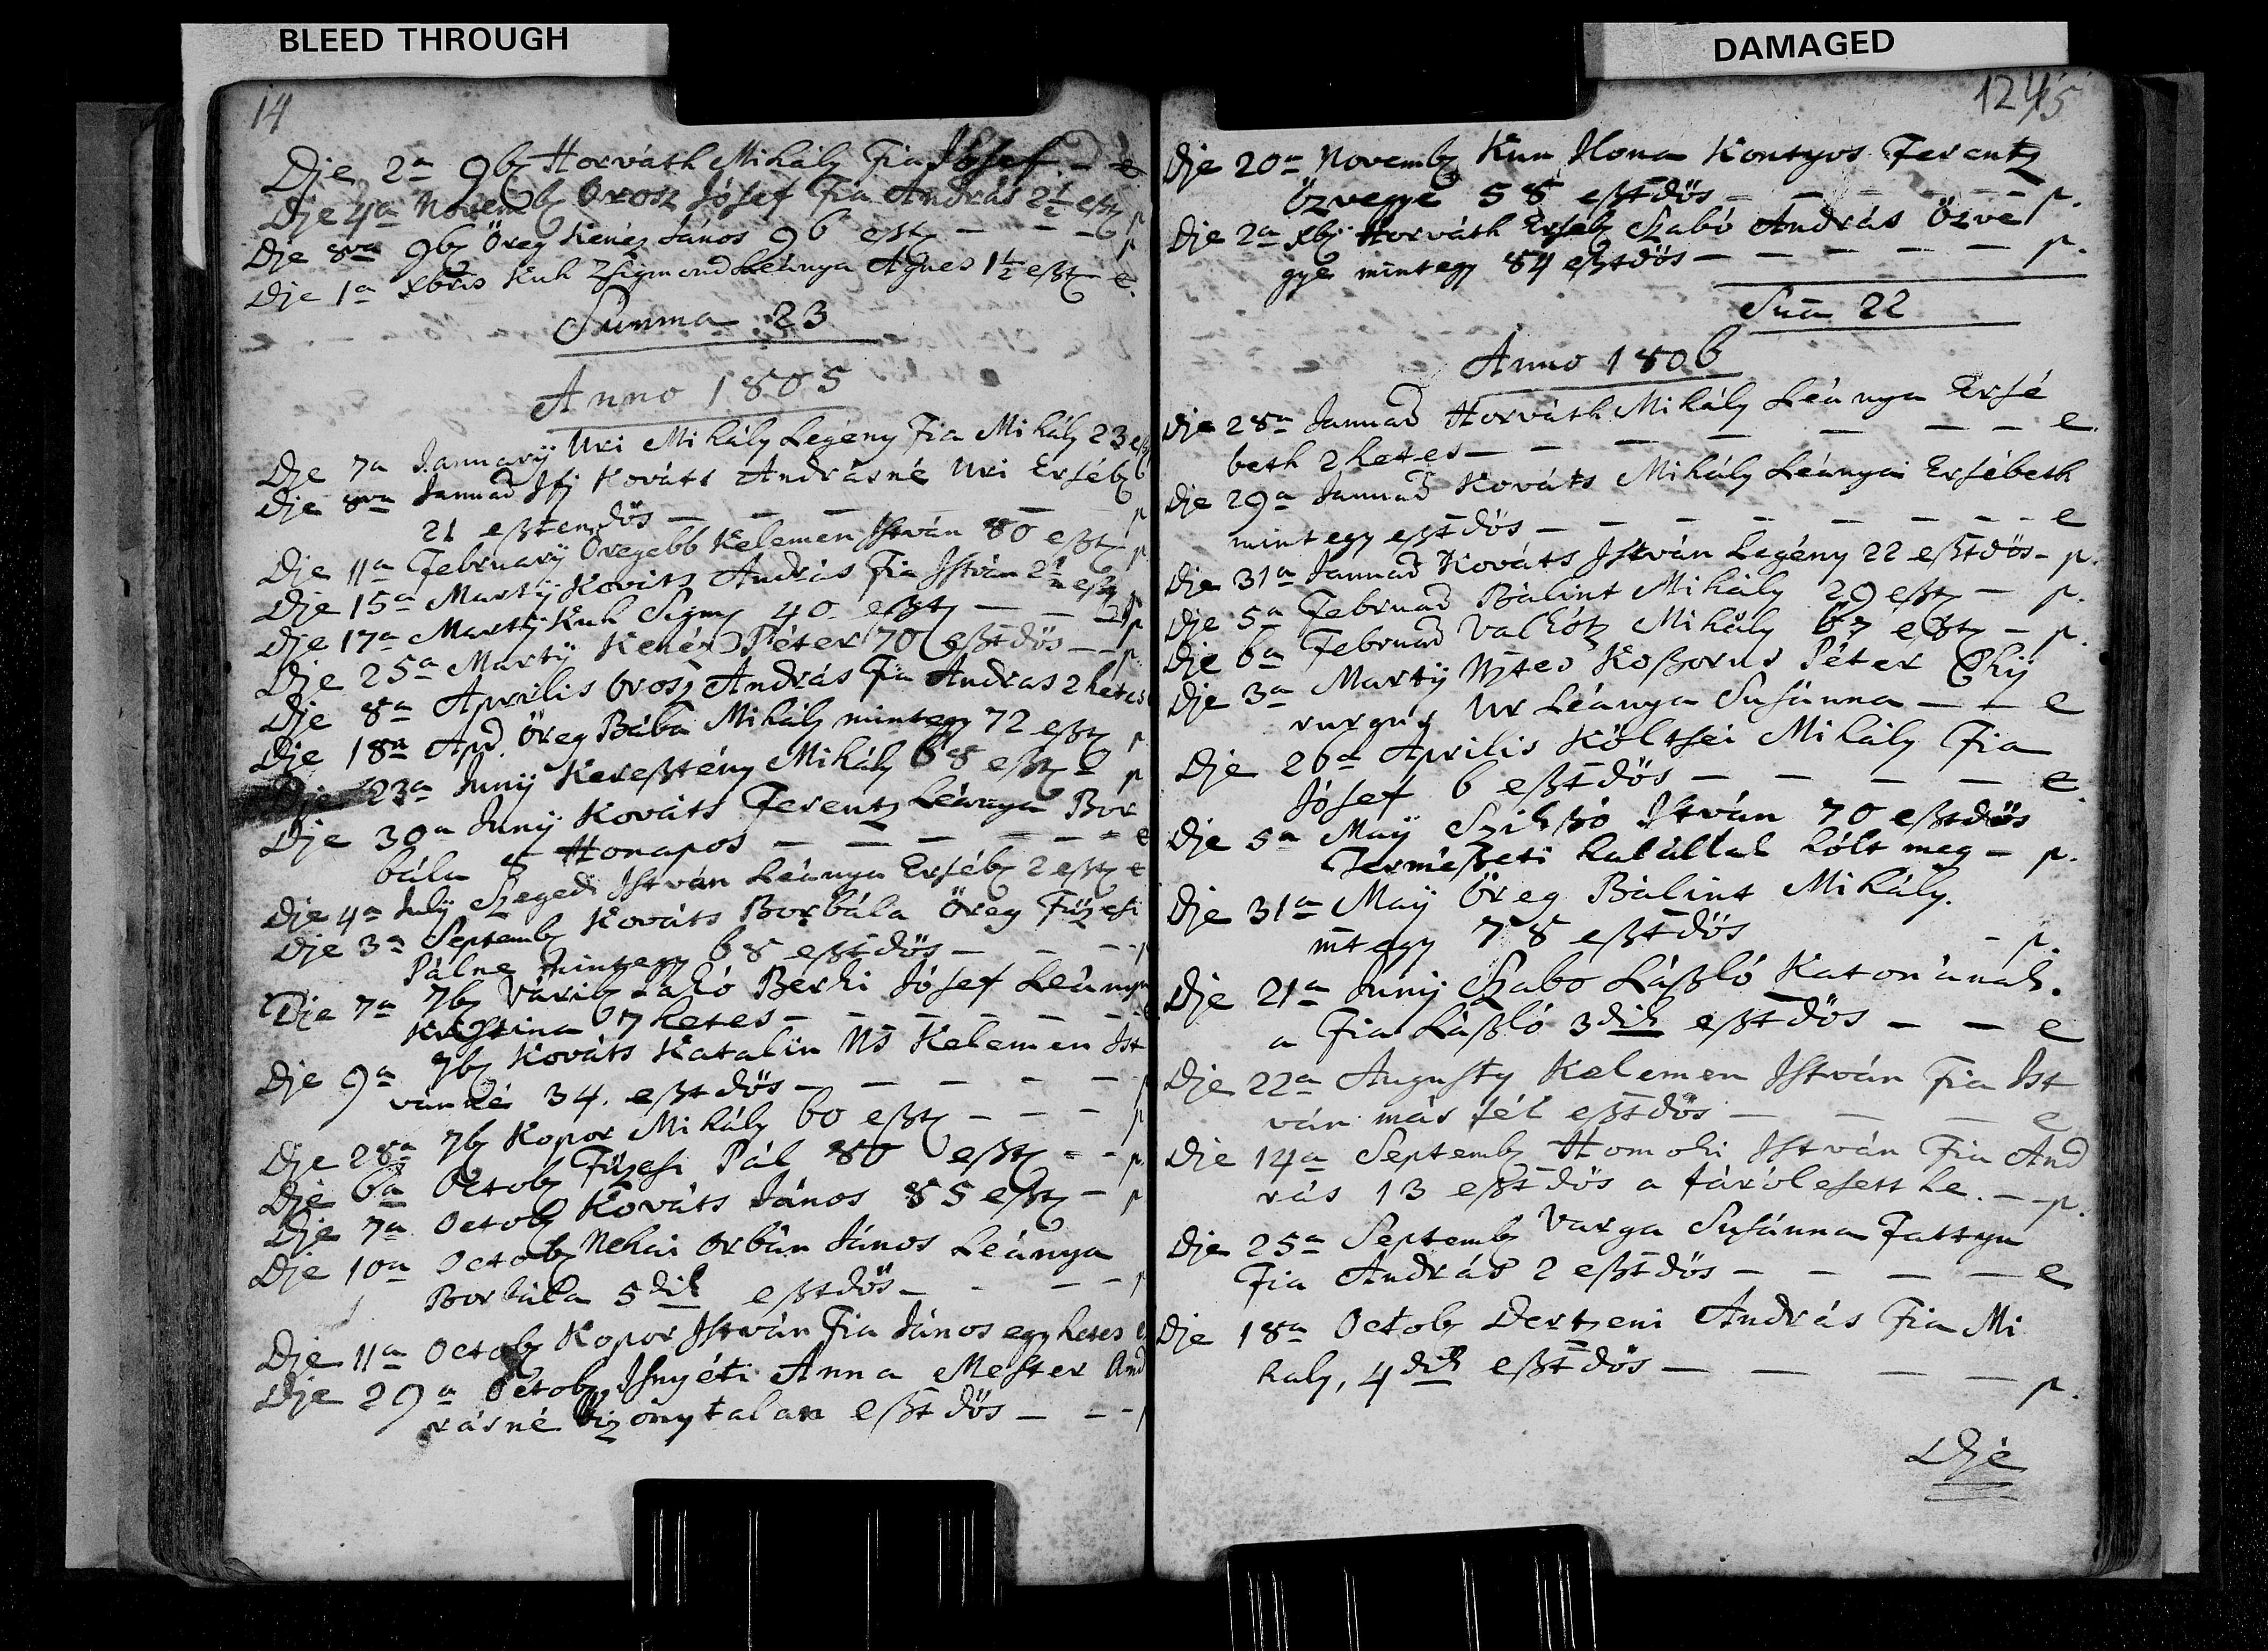 BLEED THROUGH
14
Dje 2a 9b Horváth Mihály Fia Jósef – e
Dje 4a Novemb Orosz Jósef Fia András 2½ eßt p
Dje 8va 9b Öreg Kenéz János 96 eßt – – – p
Dje 1a Xbris Kuh Zsigmond Leánya Ágnes 1½ eßt e.
Summa 23
Anno 1805
Dje 7a Januarÿ Uri Mihály Legény Fia Mihály 23 eßt
Dje 8va Januar Ifj Kováts Andrásné Uri Ersébet
21 eßtendös – – – – – p
Dje 11a Februarÿ Öregebb Kelemen István 80 eßt p
Dje 15a Martÿ Kováts András Fia István 2½ eßt
Dje 17a Martÿ Kuh Sigm 40 eßt – – – p
Dje 25a Martÿ Kenéz Péter 70 eßtdös – – p
Dje 8a Aprilis Orosz András Fia Andras 2 hetes
Dje 18a Apr. Öreg Bába Mihály mintegy 72 eßt p
Dje 23a Junÿ Kereßtény Mihály 68 eßt – p
Dje 30a Junÿ Kováts Ferentz Leánya Bor
bála 5 Honapos – – – – – e
Dje 4a Julÿ Szegedi István Leánya Erséb 2 eßt e
Dje 3a Septemb Kováts Borbála Öreg Füzesi
Pálne mintegy 68 eßtdös – – – p
Dje 7a 7b Lakó Berki Jósef Leánya
Kristina 7 hetes – – – – – –
Dje 9a 7b Kováts Katalin Ns Kelemen Ist
vánné 34. eßtdös – – – – – p
Dje 28a 7b Kopor Mihály 60 eßt – – – p
Dje 6a Octob Füzesi Pál 80 eßt – – p
Dje 7a Octob Kováts János 85 eßt – p
Dje 10a Octob Nehai Orbán János Leánya
Borbála 5dik eßtdös – – – – p
Dje 11a Octob Kopor István Fia János egy hetes e
Dje 29a Octob Isnyéti Anna Mester And
rásné bizonytalan eßtdös – – – p
DAMAGED
1245
Dje 20a Novemb Kun Ilona Kontyos Ferentz
Özvegye 58 eßtdös – – – – – – p.
Dje 2a Xb Horváth Erséb Szabó András Özve
gye mintegy 84 eßtdös – – – – – p.
Sua 22
Anno 1806
Dje 28a Januar Horváth Mihály Leánya Ersé
beth 2 hetes – – – – – – e.
Dje 29a Januar Kováts Mihály Leánya Ersébeth
mint egy eßtdös – – – – – – – e
Dje 31a Januar Kováts István Legény 22 eßtdös – p.
Dje 5a Februar Bálint Mihály 29 eßt – p.
Dje 6a Februar Mihály 67 eßt – p.
Dje 3a Martÿ Koßorus Péter Chÿ
rurgus Ur Leánya Susánna – – e
Dje 26a Aprilis Költsei Mihály Fia
Jósef 6 eßtdös – – – – – e.
Dje 5a Maÿ Szikßó István 70 eßtdös
Termeßeti halállal hólt meg – p.
Dje 31a Maÿ Öreg Bálint Mihály.
mtegy 78 eßtdös – p.
Dje 21a Junÿ Szabo Láßló Katonának.
a Fia Láßló 3dik eßtdös – – e
Dje 22a Augusty Kelemen István Fia Ist
ván más fél eßtdös – – – e
Dje 14a Septemb Homoki István Fia And
rás 13 eßtdös a fáról esett le. – – p.
Dje 25a Septemb Varga Susánna Fattyu
Fia András 2 eßtdös – – – – e
Dje 18a Octob Dertzeni András Fia Mi
haly, 4dik eßtdös – – – – p.
Dje